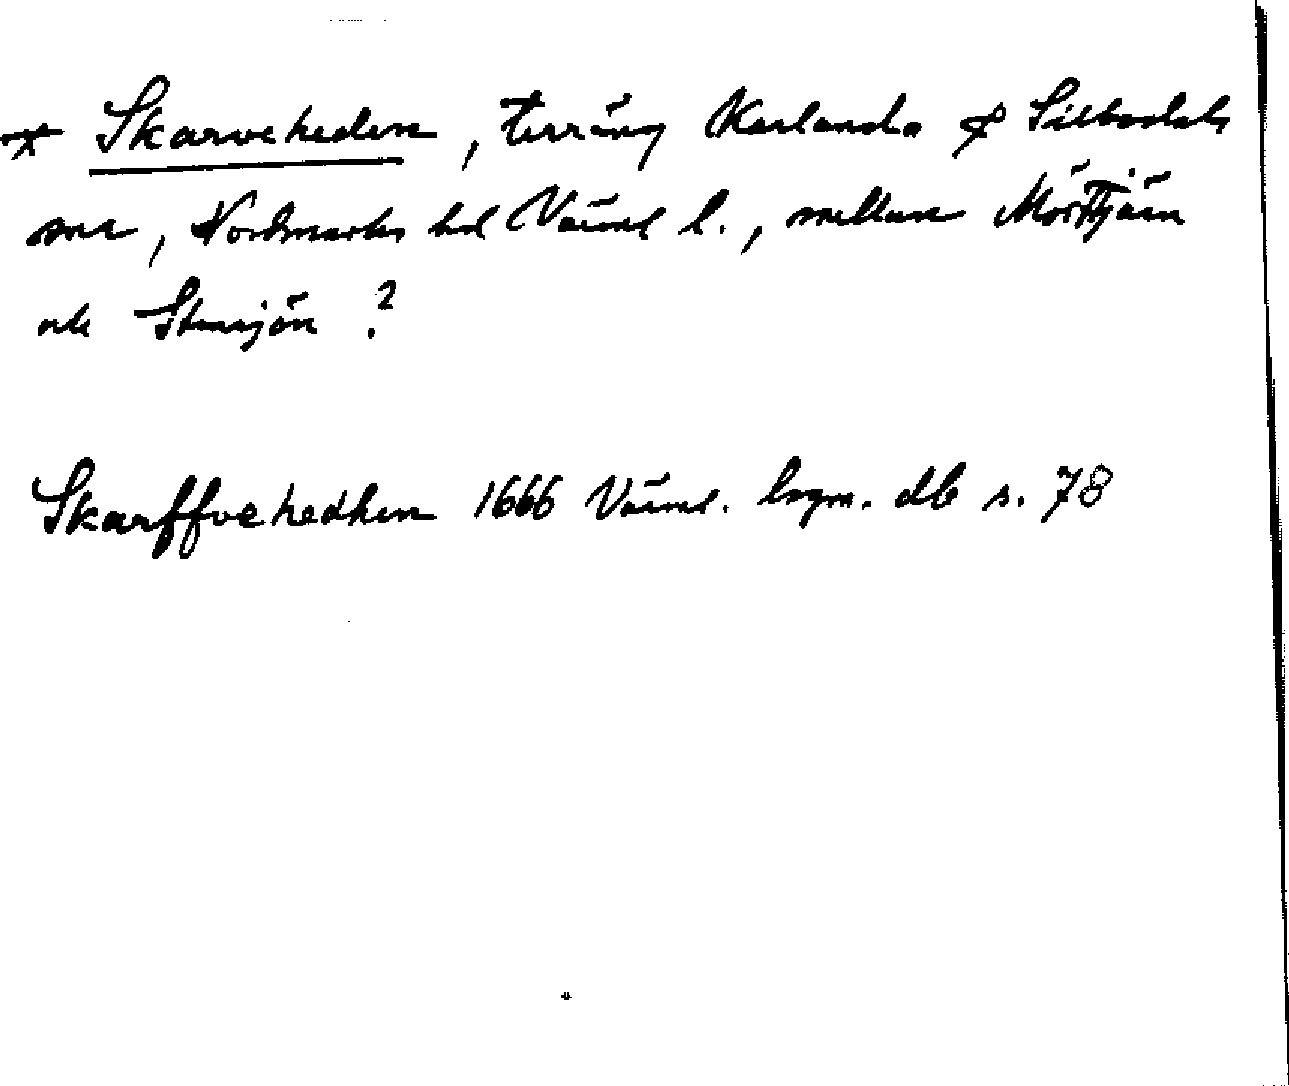 * Skarveheden, terräng Karlanda & Silbodals
snr, Nordmarks hd Värml l., mellan Mörttjärn
och Stensjön ?
Skarffvehedhen 1666 Värml. lagm. db s. 78